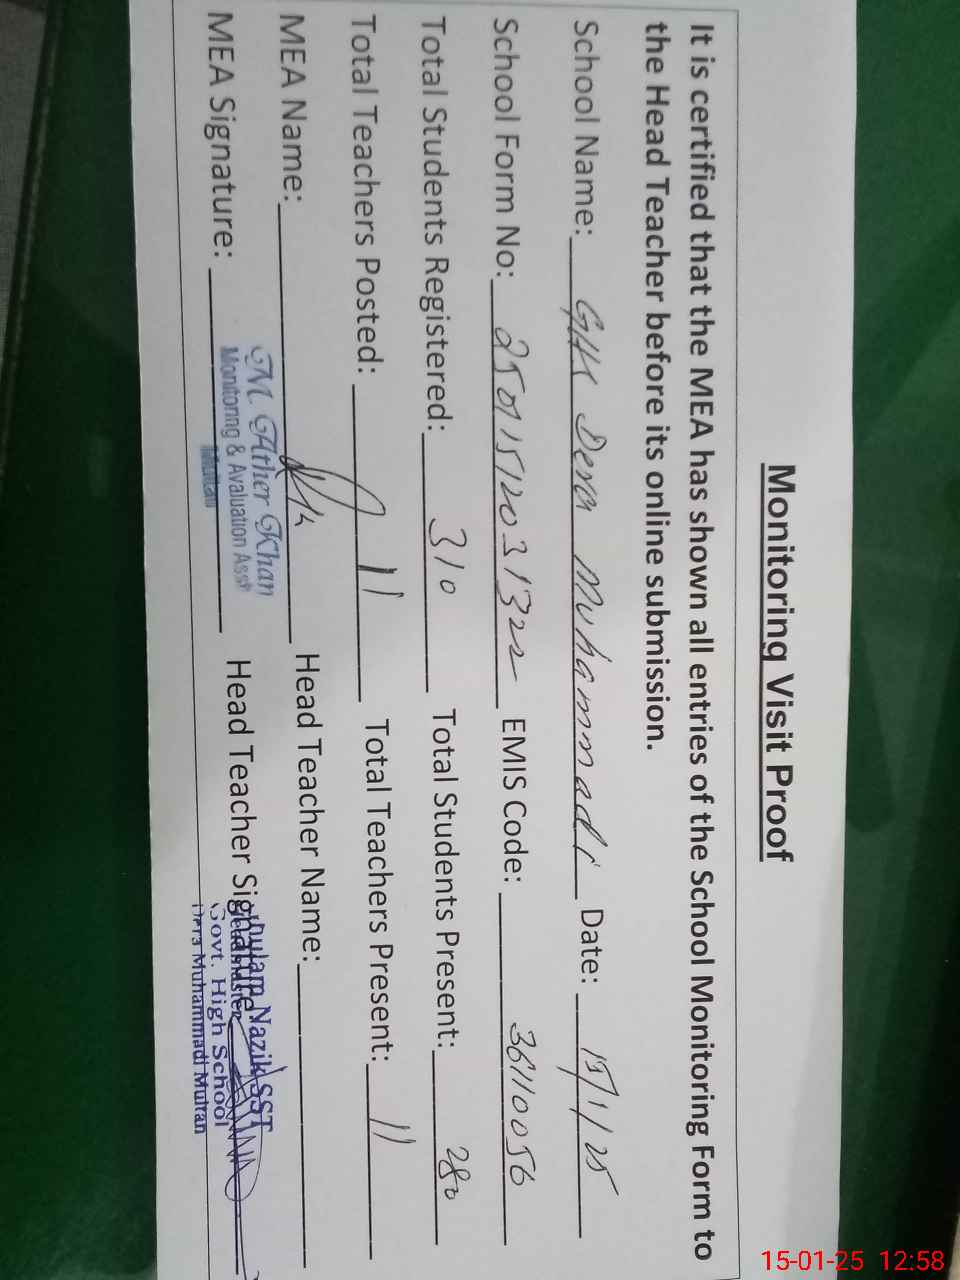 Monitoring Visit Proof
It is certified that the MEA has shown all entries of the School Monitoring Form to
the Head Teacher before its online submission.
School Name: GHS Dera Muhammadi Date: 15/1/25
School Form No: 25011512031322 EMIS Code: 36110056
Total Students Registered: 310 Total Students Present: 280
Total Teachers Posted: 11 Total Teachers Present: 11
MEA Name: Head Teacher Name:
M Ather Khan
MEA Signature: Head Teacher Signature
Monitoring & Evaluation Asst
Multan
Ghulam Nazik SST
Headmaster
Govt. High School
Dera Muhammadi Multan
15-01-25 12:58